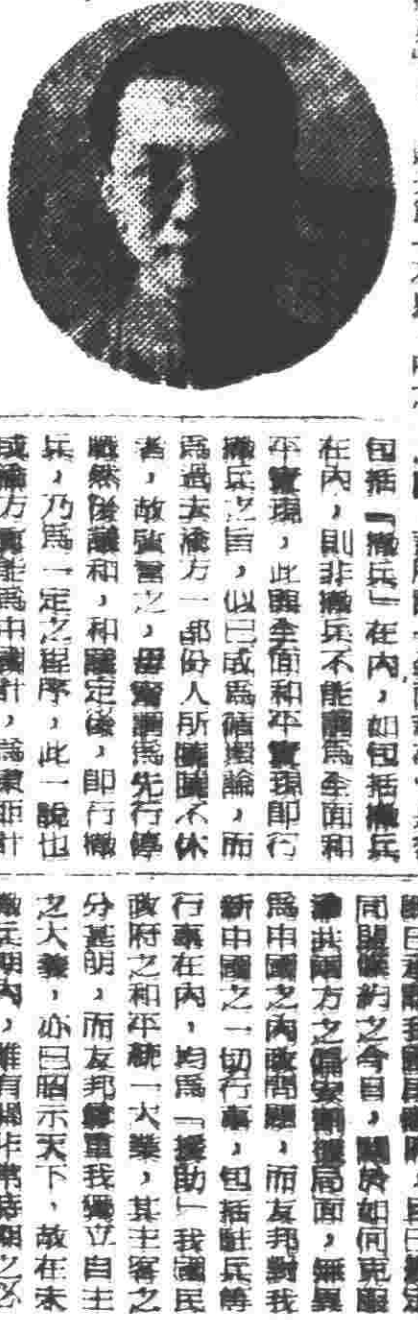 包括「撤兵」在內，如包括撤兵
在內，則非撤兵不能謂爲全面和
平實現，此與全面和平實現即行
撤兵之旨，似已成爲循環論，而
爲過去渝方一部份人所曉曉不休
者，故強言之，毋寧謂爲先行停
戰然後議和，和議定後，即行撤
兵，乃爲一定之程序，此一說也
或渝方眞能爲中國計，爲東亞計
同盟條約之今日，關於如何克服
渝共兩方之偏安割據局面，無異
爲中國之內政問題，而友邦對我
新中國之一切行事，包括駐兵等
行事在內，均爲「援助」我國民
政府之和平統一大業，其主客之
分甚明，而友邦尊重我獨立自主
之大義，亦已昭示天下，故在未
撤兵期內，惟有關非常時期之必